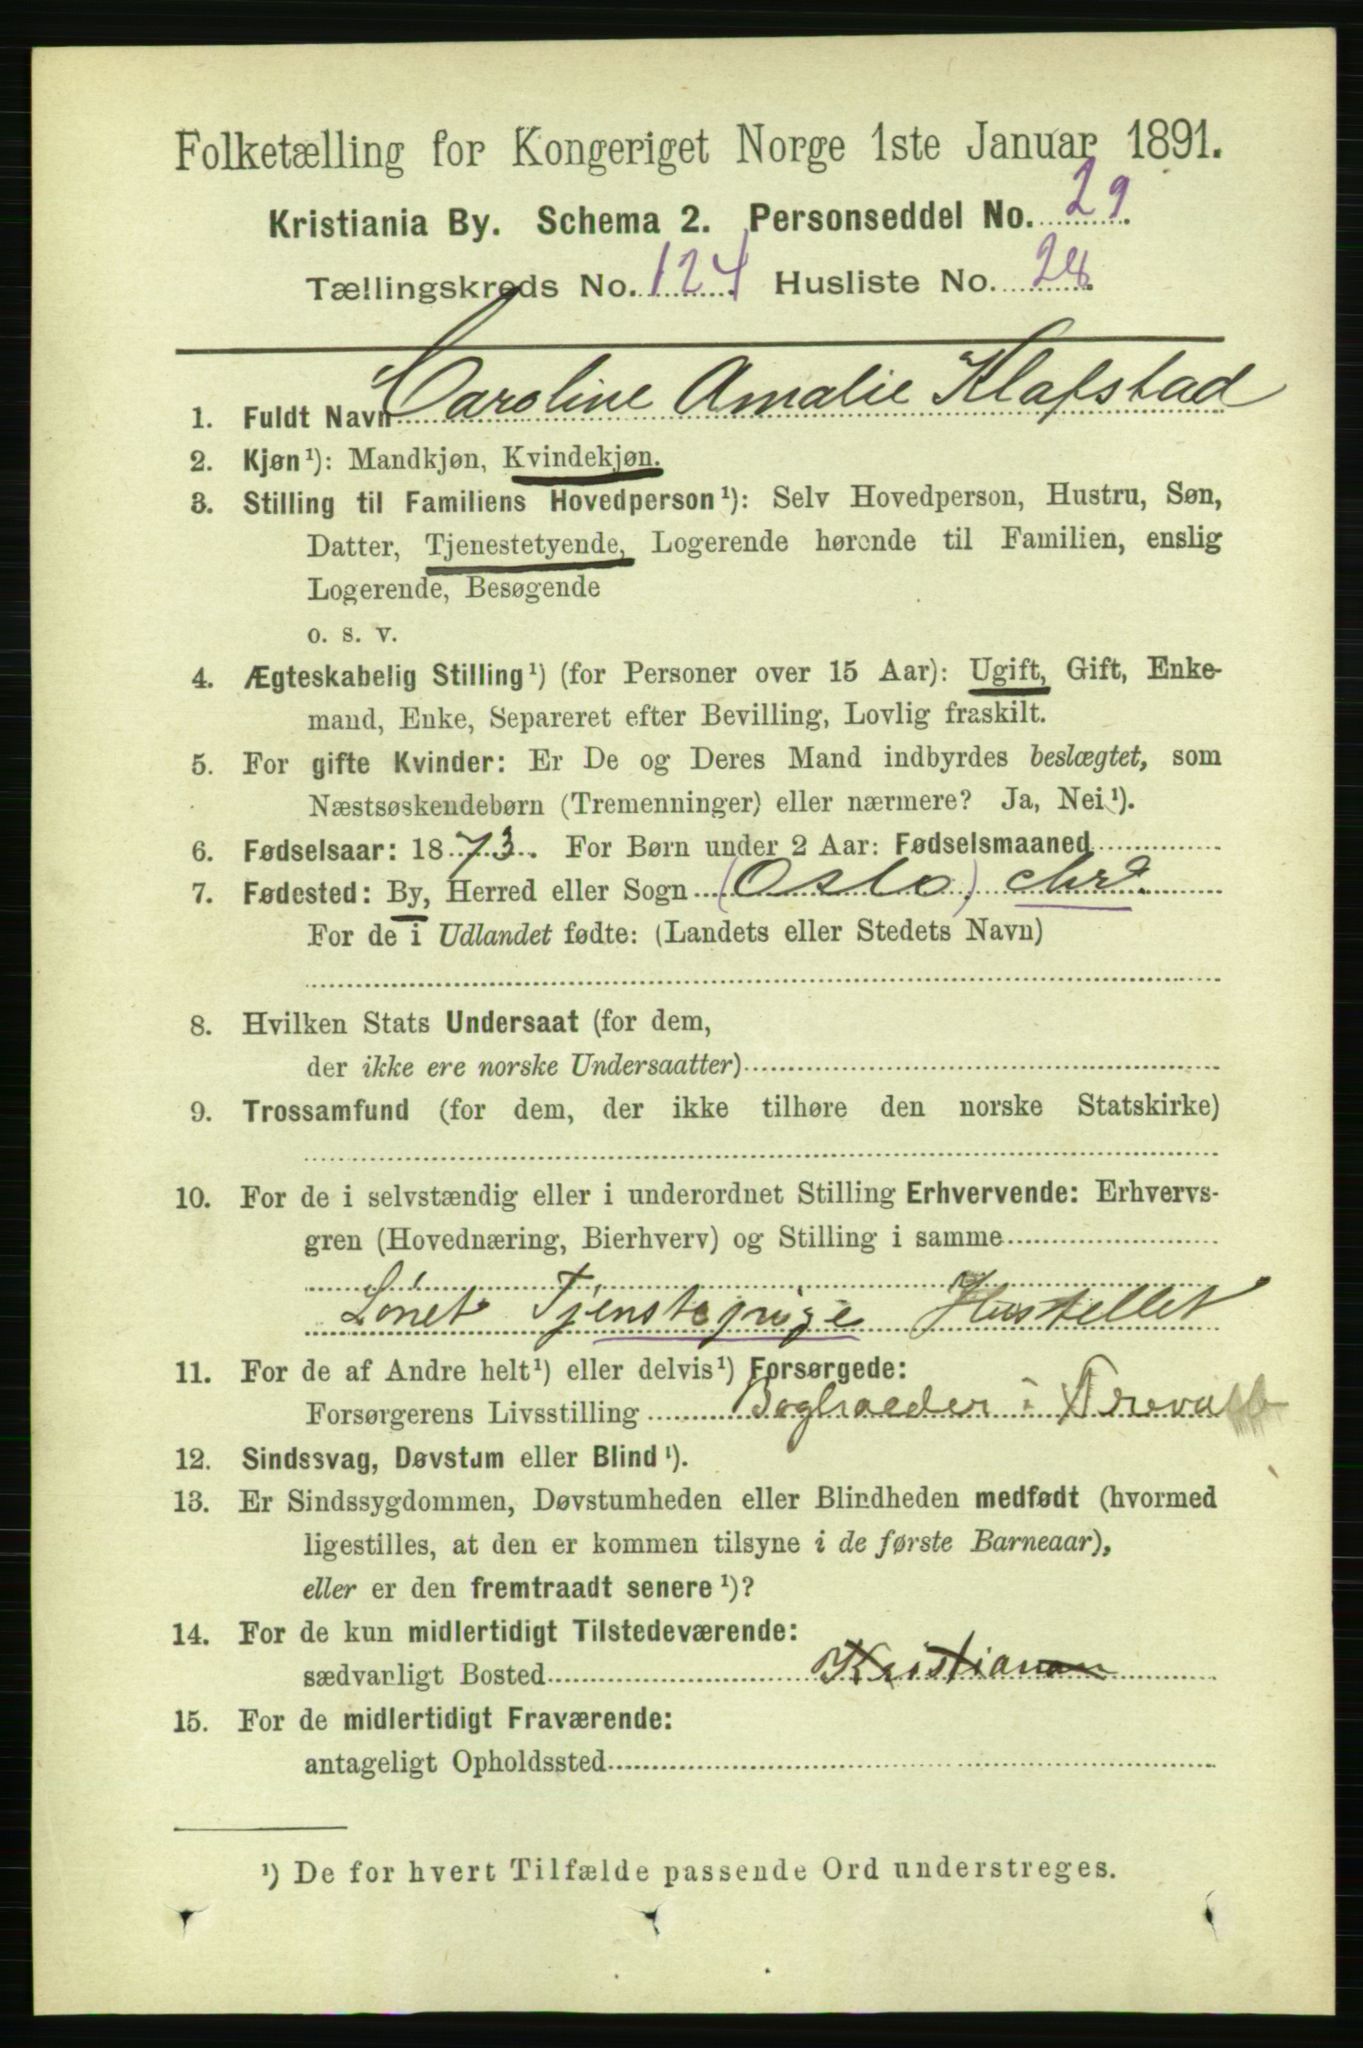 Folketælling for Kongeriget Norge 1ste Januar 1891.
Kristiania By. Schema 2. Personseddel No. 29.
Tællingskreds No. 124. Husliste No. 28.
1. Fuldt Navn Caroline Amalie Klafstad
2. Kjøn¹): Mandkjøn, Kvindekjøn.
3. Stilling til Familiens Hovedperson¹): Selv Hovedperson, Hustru, Søn,
Datter, Tjenestetyende, Logerende hørende til Familien, enslig
Logerende, Besøgende
o. s. v.
4. Ægteskabelig Stilling¹) (for Personer over 15 Aar): Ugift, Gift, Enke-
mand, Enke, Separeret efter Bevilling, Lovlig fraskilt.
5. For gifte Kvinder: Er De og Deres Mand indbyrdes beslægtet, som
Næstsøskendebørn (Tremenninger) eller nærmere? Ja, Nei¹).
6. Fødselsaar: 1873. For Børn under 2 Aar: Fødselsmaaned
7. Fødested: By, Herred eller Sogn (Oslo) Chra.
For de i Udlandet fødte: (Landets eller Stedets Navn)
8. Hvilken Stats Undersaat (for dem,
der ikke ere norske Undersaatter)
9. Trossamfund (for dem, der ikke tilhøre den norske Statskirke)
10. For de i selvstændig eller i underordnet Stilling Erhvervende: Erhvervs-
gren (Hovednæring, Bierhverv) og Stilling i samme
Lønet Tjenstepige Husstellet
11. For de af Andre helt¹) eller delvis¹) Forsørgede:
Forsørgerens Livsstilling Bogholder i
12. Sindssvag, Døvstum eller Blind¹).
13. Er Sindssygdommen, Døvstumheden eller Blindheden medfødt (hvormed
ligestilles, at den er kommen tilsyne i de første Barneaar),
eller er den fremtraadt senere¹)?
14. For de kun midlertidigt Tilstedeværende:
sædvanligt Bosted
15. For de midlertidigt Fraværende:
antageligt Opholdssted
¹) De for hvert Tilfælde passende Ord understreges.